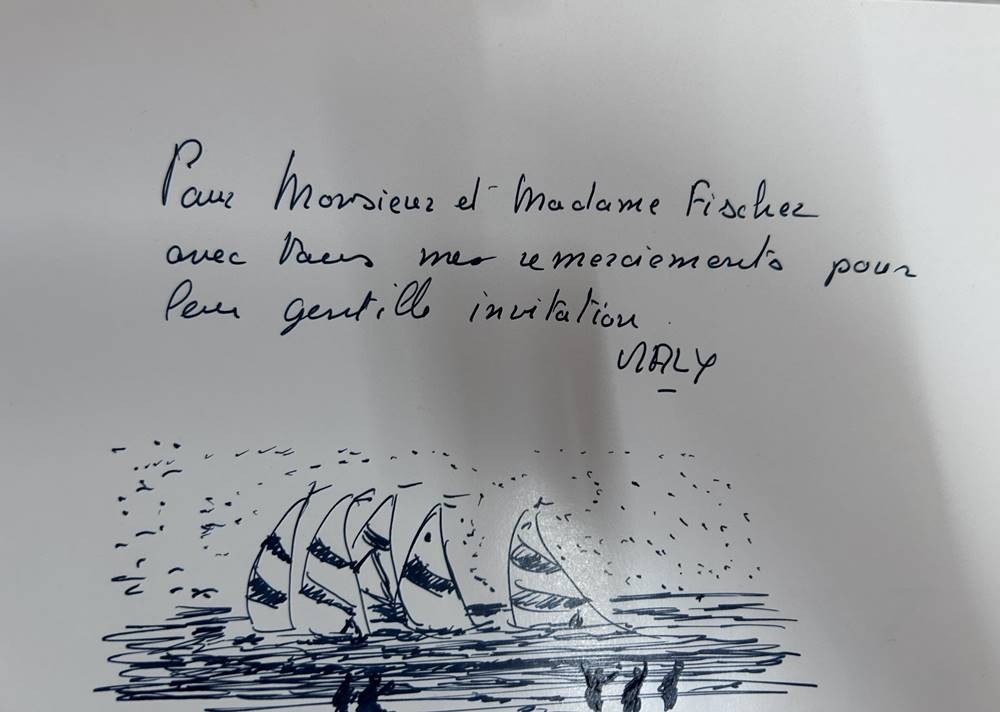 Pour Monsieur et Madame Fischer
avec tous mes remerciements pour
leur gentille invitation
NALY